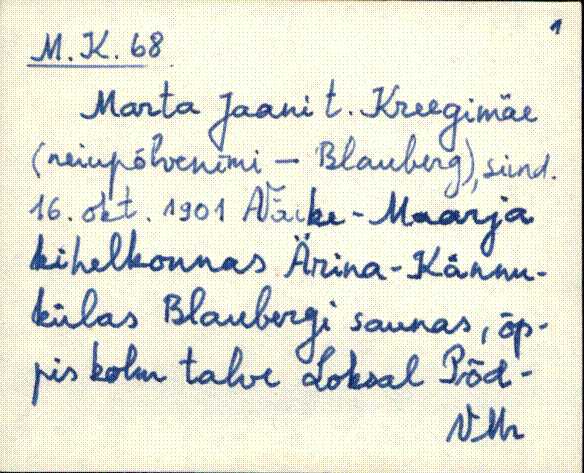 1
M. K. 68
Marta Jaani t. Kreegimäe
(neiupõlvenimi – Blauberg), sünd.
16. okt. 1901 Väike-Maarja
kihelkonnas Ärina-Kännu-
külas Blaubergi saunas, õp-
pis kolm talve Loksal Põd-
VMr